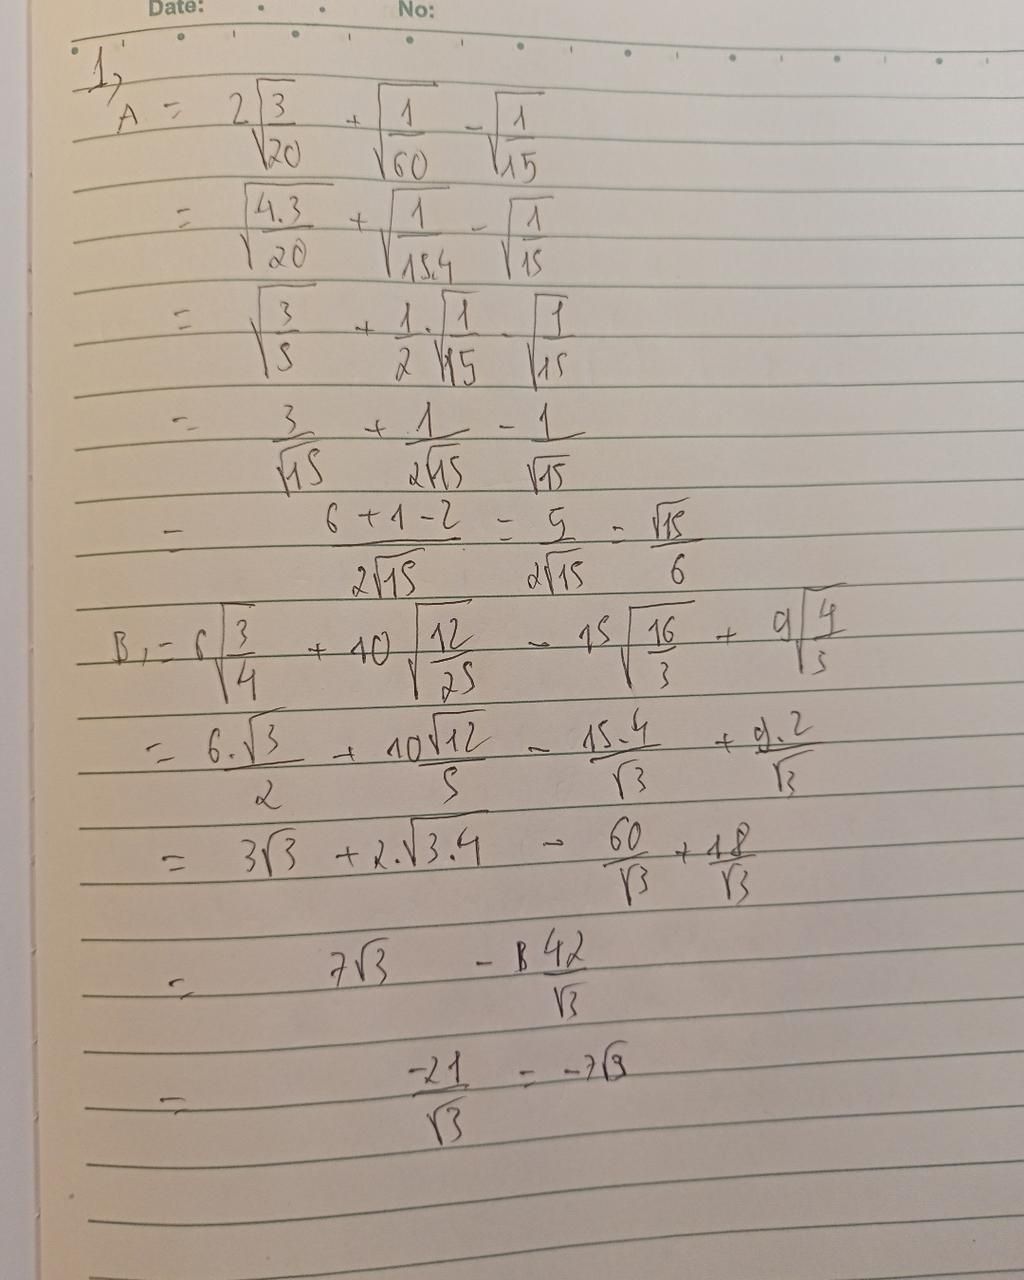 Date: No:
1,
A = 2√(3/20) + √(1/60) - √(1/15)
= √(4.3/20) + √(1/15.4) - √(1/15)
= √(3/5) + 1/2 . √(1/15) - √(1/15)
= 3/√15 + 1/2√15 - 1/√15
= 6 + 1 - 2/2√15 = 5/2√15 = √15/6
B, = 6√(3/4) + 10√(12/25) - 15√(16/3) + 9√(4/3)
= 6.√3/2 + 10√12/5 - 15.4/√3 + 9.2/√3
= 3√3 + 2.√3.4 - 60/√3 + 18/√3
= 7√3 - 42/√3
= -21/√3 = -7√3